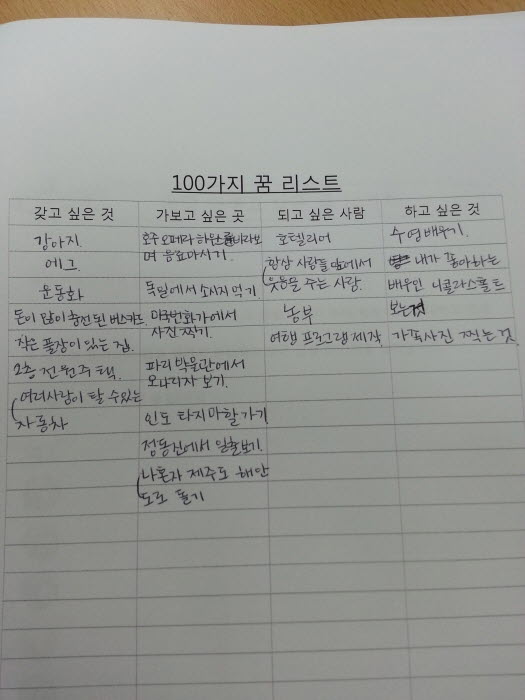 100가지 꿈 리스트
갖고 싶은 것
가보고 싶은 곳
되고 싶은 사람
하고 싶은 것
강아지
에그
운동화
돈이 많이 충전된 버스카드
작은 풀장이 있는 집
2층 전원주택
여러사람이 탈 수 있는
자동차
호주 오페라 하우스를 바라보
며 음료마시기.
독일에서 소시지 먹기.
번화가에서
사진 찍기.
파리 박물관에서
모나리자 보기.
인도 타지마할 가기
정동진에서 일출보기.
나혼자 제주도 해안
도로 돌기
호텔리어
항상 사람들 앞에서
웃음을 주는 사람.
농부
여행 프로그램 제작.
수영배우기.
내가 좋아하는
배우인 니콜라스홀트
보는것
가족사진 찍는것.